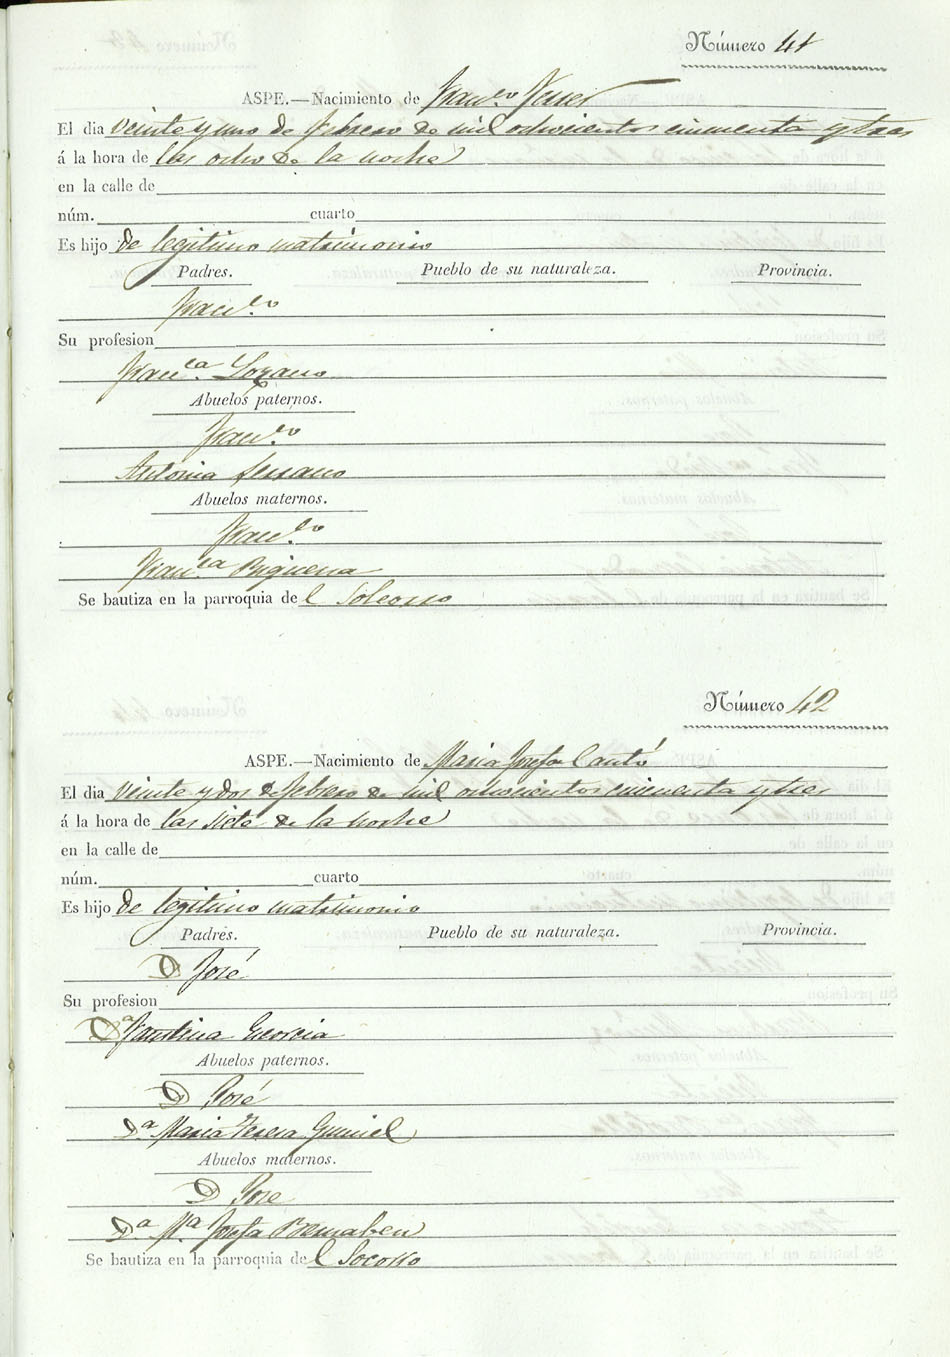 Número 41
ASPE.—Nacimiento de Franco. Ferrer
El dia veinte y uno de febrero de mil ochocientos cincuenta y tres
á la hora de las ocho de la noche
en la calle de
núm. cuarto
Es hijo de legitimo matrimonio
Padres. Pueblo de su naturaleza. Provincia.
Franco.
Su profesion
Franca. Lozano
Abuelos paternos.
Franco.
Antonia Serrano
Abuelos maternos.
Franco.
Franca.
Se bautiza en la parroquia del Socorro
Número 42
ASPE.—Nacimiento de Maria Josefa Cantó
El dia veinte y dos de febrero de mil ochocientos cincuenta y tres
á la hora de las siete de la noche
en la calle de
núm. cuarto
Es hijo de legitimo matrimonio
Padres. Pueblo de su naturaleza. Provincia.
D José
Su profesion
Da Faustina
Abuelos paternos.
D José
Da Maria Teresa Gumiel
Abuelos maternos.
D Jose
Da Ma Josefa Bernabeu
Se bautiza en la parroquia del Socorro